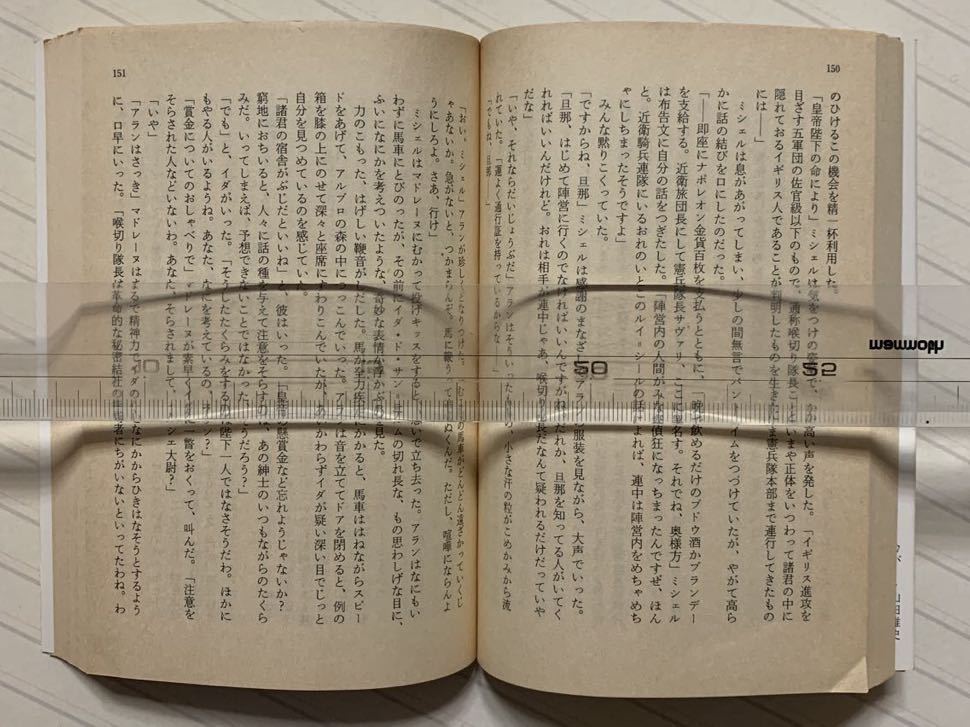 150
のひけるこの機会を精一杯利用した。
「皇帝陛下の命により」ミシェルは気をつけの姿勢で、かん高い声を発した。「イギリス進攻を
目ざす五軍団の佐官級以下のもので、通称喉切り隊長こと いまや正体をいつわって諸君の中に
隠れておるイギリス人であることが判明したものを生きたまま憲兵隊本部まで連行してきたもの
には――」
ミシェルは息があがってしまい、少しの間無言でパントマイムをつづけていたが、やがて高ら
かに話の結びを口にしたのだった。
「――即座にナポレオン金貨百枚を支払うとともに、一晩で飲めるだけのブドウ酒かブランデー
を支給する。近衛旅団長にして憲兵隊長サヴァリ、ここに署名す。それでね、奥様方」ミシェル
は布告文に自分の話をつぎたした。「陣営内の人間がみな探偵狂になっちまったんですぜ、ほん
と。近衛騎兵連隊にいるおれのいとこのルイ＝シールの話によれば、連中は陣営内をめちゃめち
ゃにしちまったそうですよ」
みんな黙りこくっていた。
「ですからね、旦那」ミシェルは感謝のまなざしでアランの服装を見ながら、大声でいった。
「旦那、はじめて陣営に行くのでなければいいんですがね。だれか、旦那を知ってる人がいてく
れればいいんだけれど。おれは相手が連中じゃあ、喉切り隊長だなんて疑われるだけだっていや
だな」
「いや、それならだいじょうぶだ」アランはそういったものの、小さな汗の粒がこめかみから流
れていた。「運よく通行証を持っているからな」
「でもね、旦那――」
151
「おい、ミシェル」アランが珍しくどなりつけた。「むこうの馬車がどんどん遠ざかっていくじ
ゃあないか。急がないと、つかまらんぞ。馬に鞭 って ぬくんだ。ただし、喧嘩にならんよ
うにしろよ。さあ、行け」
ミシェルはマドレーヌにむかって投げキッスをすると、 いで立ち去った。アランはなにもい
わずに馬車にとびのったが、その前にイダ・ド・サン＝ テルムの切れ長な、もの思わしげな目に、
ふいになにかを考えついたような、奇妙な表情が浮かぶのを見た。
力のこもった、はげしい鞭音がしだした。馬が全力疾走にかかると、馬車ははねながらスピー
ドをあげて、アルブロの森の中につっこんでいった。アランは音を立ててドアを閉めると、例の
箱を膝の上にのせて深々と座席にすわりこんでいたが、あいかわらずイダが疑い深い目でじっと
自分を見つめているのを感じていた。
「諸君の宿舎がぶじだといいね」と、彼はいった。「皇帝の懸賞金など忘れようじゃないか?
窮地におちいると、人々に話の種を与えて注意をそらすのは、あの紳士のいつもながらのたくら
みだ。いってしまえば、予想できないことではなかった。そうだろう?」
「でも」と、イダがいった。「そうしたたくらみをするのは陛下一人ではなさそうだわ。ほかに
もやる人がいるようね。あなた、なにを考えているの、アラン?」
「賞金についてのおしゃべりで」マドレーヌが素早くイダに一瞥をおくって、叫んだ。「注意を
そらされた人などいないわ。あなた、そらされまして、メルシェ大尉?」
「いや」
「アランはさっき」マドレーヌはまるで精神力でイダの注意をなにかからひきはなそうとするよう
に、口早にいった。「喉切り隊長は革命的な秘密結社の指導者にちがいないといってたわね。わ
山田維史
10
50
52
wewworth